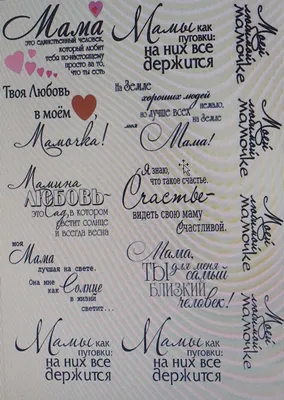 Мама
это единственный человек,
который любит
тебя по-настоящему
просто за то,
что ты есть
Мамы как
пуговки:
на них все
держится
Твоя Любовь
в моём
Мамочка!
На Земле
хороших людей
немало,
но лучше всех
на Земле
моя Мама!
Мамина
ЛЮБОВЬ-
это Сад, в котором
светит солнце
и всегда весна
Я знаю,
что такое счастье.
Счастье-
видеть свою маму
Счастливой.
моя
Мама
лучшая на свете.
Она мне Солнце
как в жизни
светит...
Мама,
ТЫ для меня
самый
близкий
человек!
Мамы как
пуговки:
на них все
держится
Мамы как
пуговки:
на них все
держится
Моей
любимой
мамочке
Моей
любимой
мамочке
Моей
любимой
мамочке
Моей
любимой
мамочке